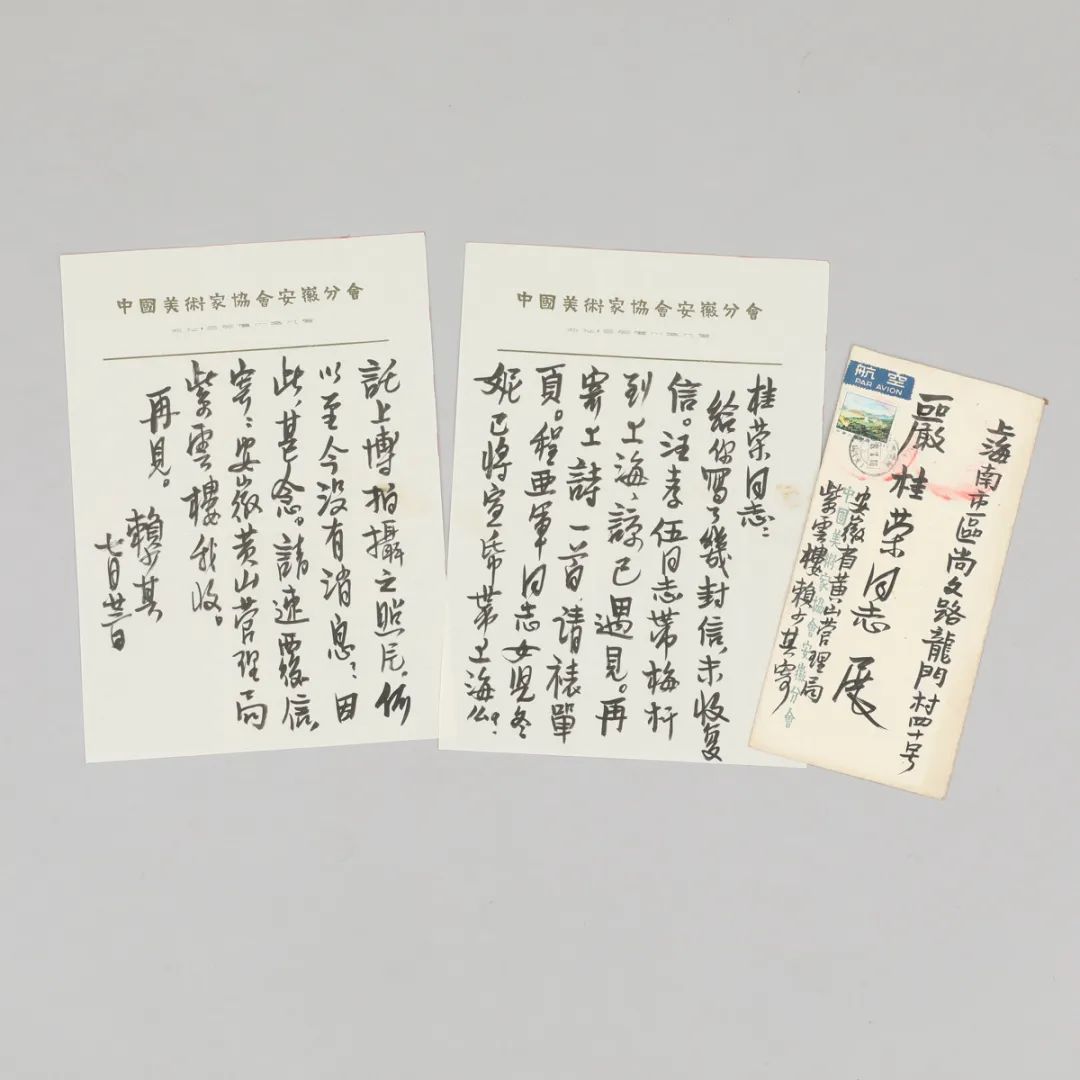 中國美術家協會安徽分會
桂荣同志:
給你寫了幾封信,未收复
信。汪孝伍同志帶梅杆
到上海,諒已遇見。再
寄上詩一首,请裱單
頁。程亜軍同志女児冬
妮已將宣纸帶上海
中國美術家協會安徽分會
託上博拍攝之照片。何
以至今没有消息:因
此,甚念。請速覆信,
寄:安徽黄山管理局
紫雲樓我收。
再見。
賴少其
七月廿一日
航空
PAR AVION
上海南市區尚文路龍門村四十号
嚴桂荣同志 展
安徽省黄山管理局
紫雲樓賴少其寄
中國美術家協會安徽分會